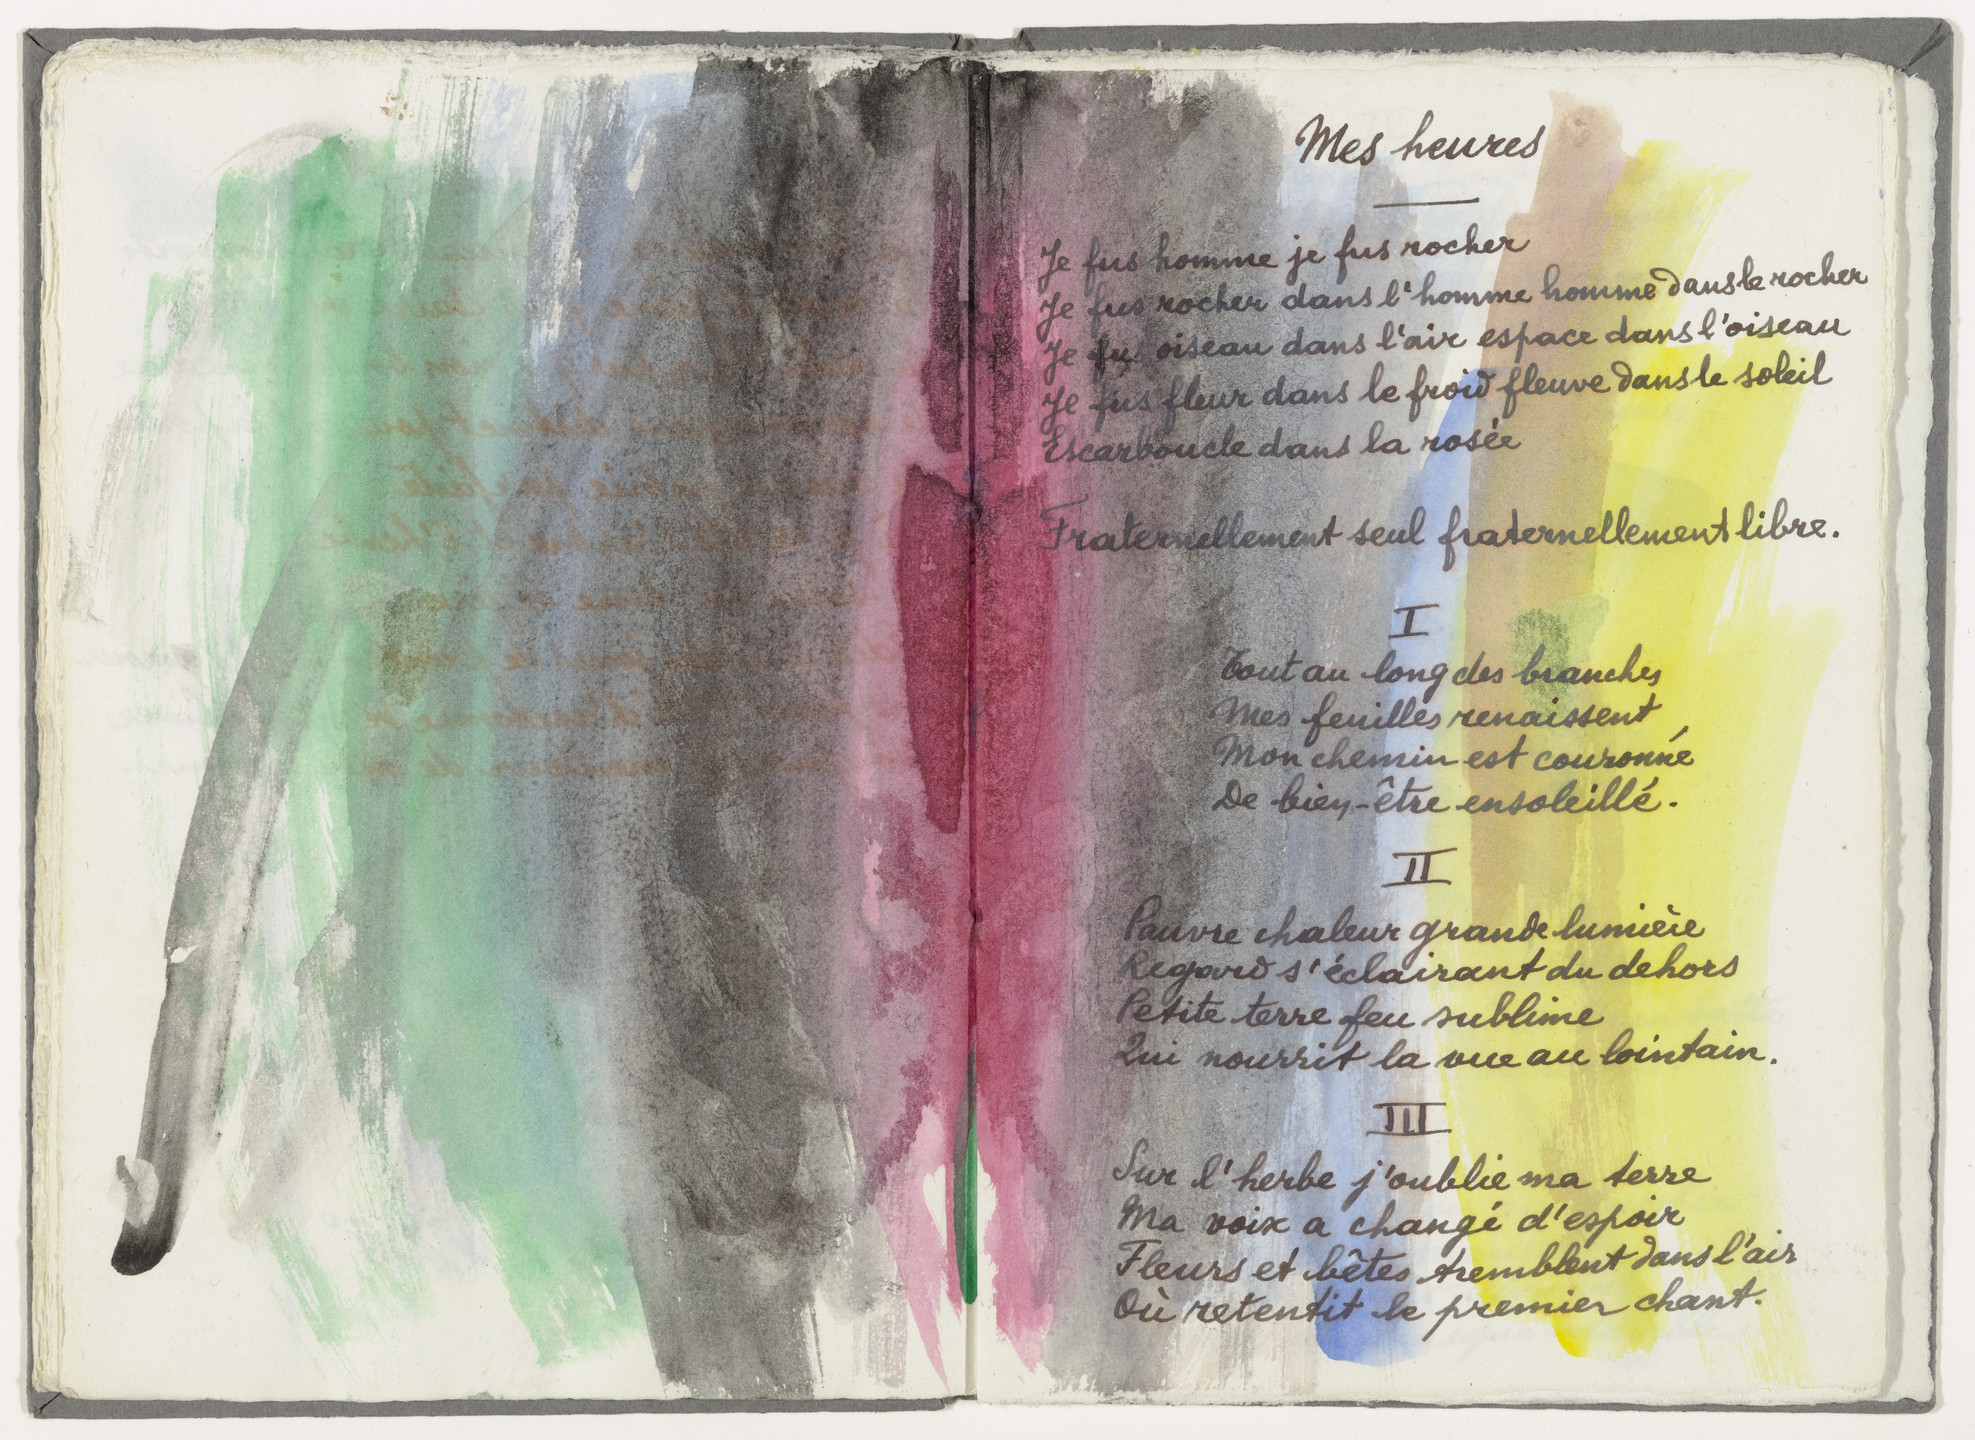 Mes heures
Je fus homme je fus rocher
Je fus rocher dans l'homme homme dans le rocher
Je fus oiseau dans l'air espace dans l'oiseau
Je fus fleur dans le froid fleuve dans le soleil
Escarboucle dans la rosée
Fraternellement seul fraternellement libre.
I
Tout au long des branches
Mes feuilles renaissent
Mon chemin est couronné
De bien-être ensoleillé.
II
Pauvre chaleur grande lumière
Regard s'éclairant du dehors
Petite terre feu sublime
Qui nourrit la vue au lointain.
III
Sur l'herbe j'oublie ma terre
Ma voix a changé d'espoir
Fleurs et bêtes tremblent dans l'air
Où retentit le premier chant.